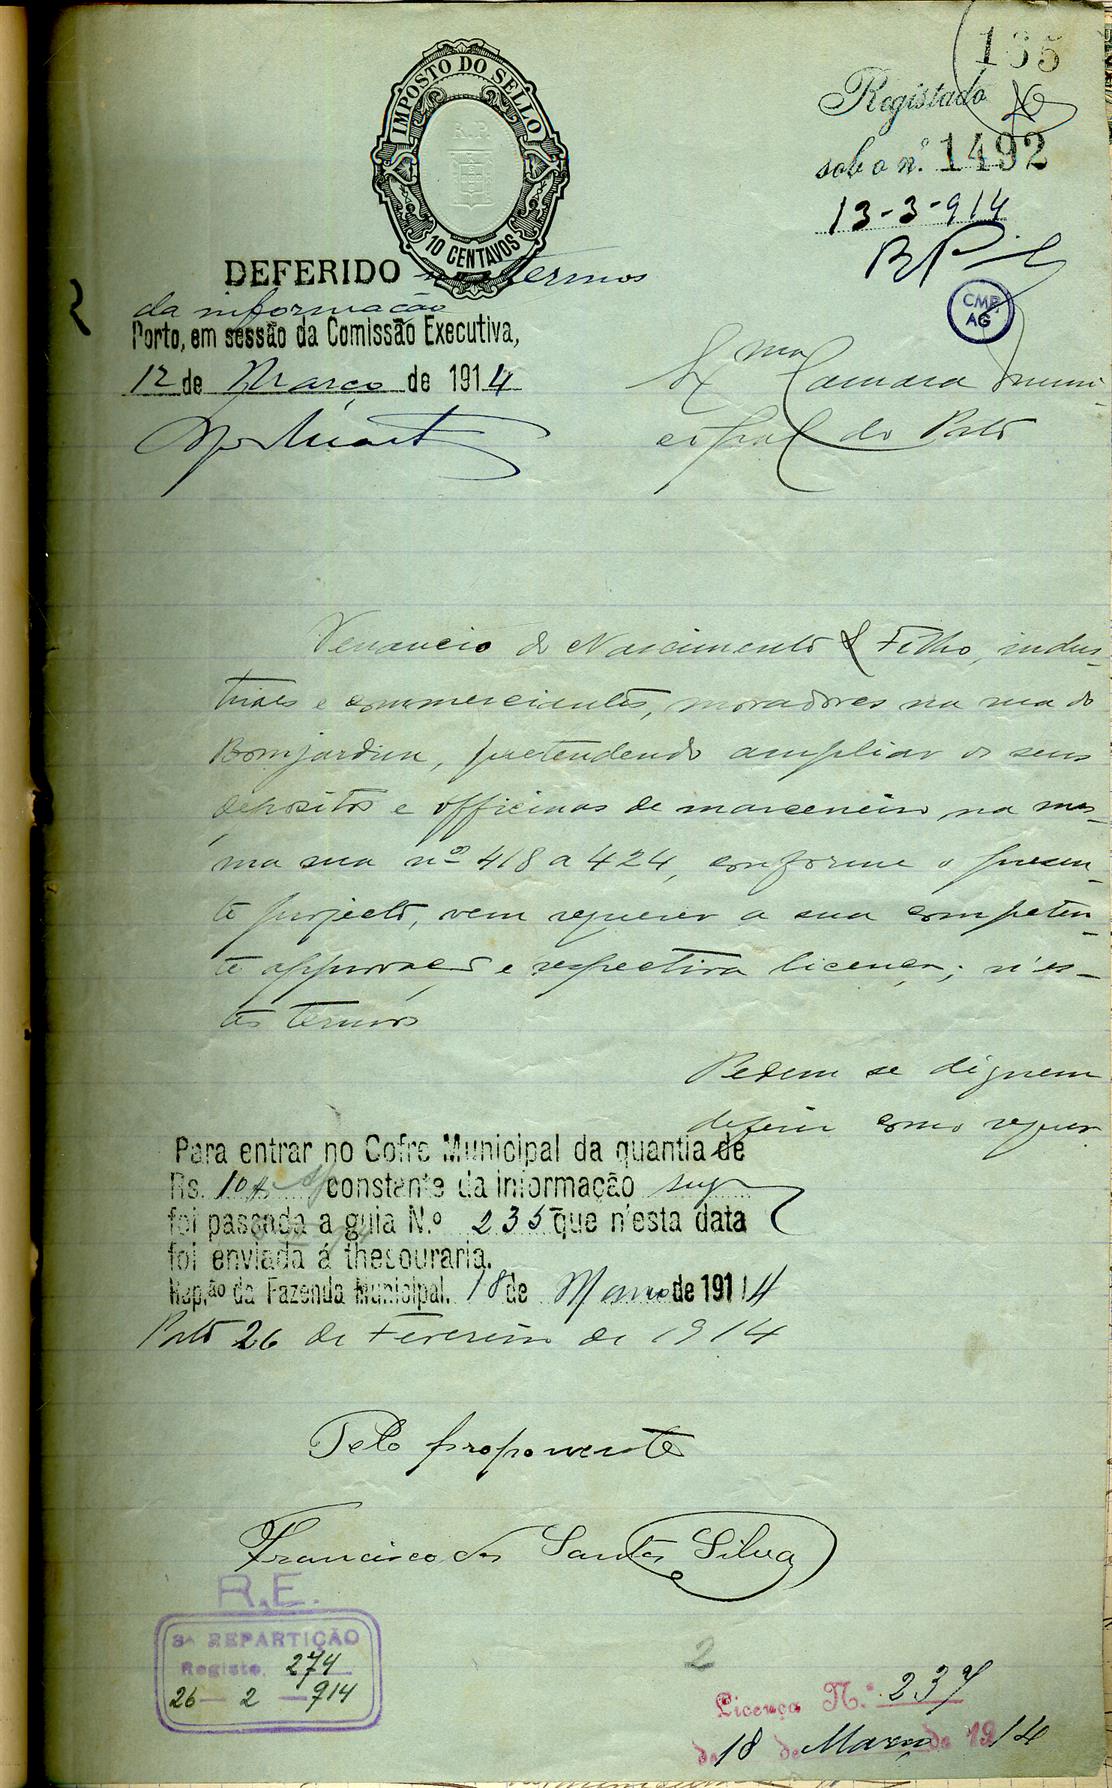 165
IMPOSTO DO SELLO
R.P.
10 CENTAVOS
Registado
sob o n.º 1492
13-3-914
CMP
AG
DEFERIDO nos termos
da informação
Porto, em sessão da Comissão Executiva,
12 de Março de 1914
Exma Camara Muni-
cipal do Porto
Venancio do Nascimento & Filho, indus-
triaes e commerciantes, moradores na rua do
Bomjardim, pretendendo ampliar os seus
depositos e officinas de marceneiro na mes-
ma rua nos 418 a 424, conforme o presen-
te projecto, vem requerer a sua competen-
te approvação e respectiva licença; n'es-
tes termos
Pedem se dignem
deferir como requer
Para entrar no Cofre Municipal da quantia de
Rs. 10$ constante da informação supra
foi passada a guia N.º 235 que n'esta data
foi enviada á thesouraria.
Rep.ão da Fazenda Municipal, 18 de Março de 1914
Porto 26 de Fevereiro de 1914
Pelo proponente
Francisco dos Santos Silva
R.E.
3ª REPARTIÇÃO
Registo 274
26-2-914
2
Licença N.º 237
de 18 de Março de 1914